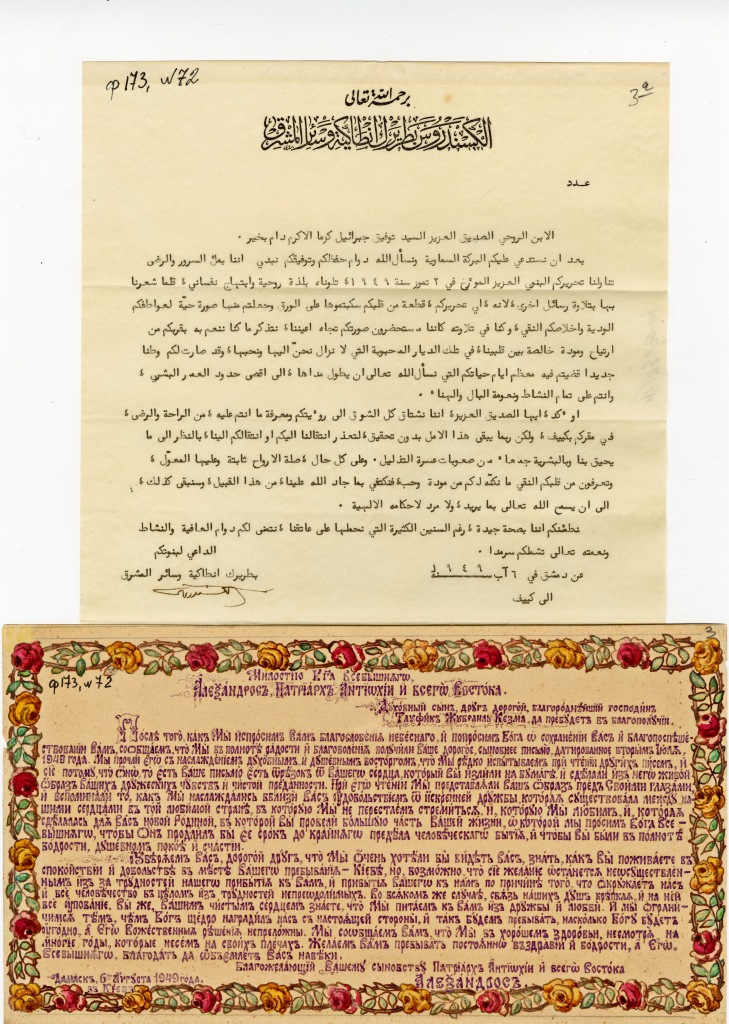 ф 173, № 72
3ª
برحمة الله تعالى
الكسندروس بطريرك انطاكية وسائر المشرق
عدد
الابن الروحي الصديق العزيز السيد توفيق جبرائيل كزما الاكرم دام بخير .
بعد ان نستدعي عليكم البركة السماوية ونسأل الله دوام حفظكم وتوفيقكم نبدي اننا بملْ السرور والرضى
تناولنا تحريركم البنوي العزيز المورخ في ٢ تموز سنة ١٩٤٩ ، تلوناه بلذة روحية وابتهاج نفساني ، قلما شعرنا
بها بتلاوة رسائل اخرى ، لانه ، اي تحريركم ، قطعة من قلبكم سكبتموها على الورق وجعلتم منها صورة حيّة لعواطفكم
الودية واخلاصكم النقي ، وكنا في تلاوته كاننا مستحضرون صورتكم تجاه اعيننا ، نتذكر ما كنا ننعم به بقربكم من
ارتياح ومودة خالصة بين قلبينا ، في تلك الديار المحبوبة التي لا نزال نحنّ اليها ونحبها ، وقد صارت لكم وطنا
جديدا قضيتم فيه معظم ايام حياتكم التي نسأل الله تعالى ان يطول مداها ، الى اقصى حدود العمر البشري ،
وانتم على تمام النشاط ونعومة البال والهناء .
اوْكد ، ايها الصديق العزيز ، اننا نشتاق كل الشوق الى روْيتكم ومعرفة ما انتم عليه ، من الراحة والرضى ،
في مقركم بكييف ، ولكن ربما يبقى هذا الامل بدون تحقيق ، لتعذر انتقالنا اليكم او انتقالكم الينا ، بالنظر الى ما
يحيق بنا وبالبشرية جمعاء من صعوبات عسرة التذليل . وعلى كل حال ، صلة الارواح ثابتة وعليها المعوّل ،
وتعرفون من قلبكم النقي ما نكنّه لكم من مودة وحب ، فنكتفي بما جاد الله علينا ، من هذا القبيل ، وسنبقى كذلك ،
الى ان يسمح الله تعالى بما يريد ، ولا مرد لاحكامه الالهية .
نطمئنكم اننا بصحة جيدة ، رغم السنين الكثيرة التي نحملها على عاتقنا ، نتمنى لكم دوام العافية والنشاط
ونعمته تعالى تشملكم سرمدا .
الداعي لبنوتكم
عن دمشق في ٦ آب سنة ١٩٤٩
بطريرك انطاكية وسائر المشرق
الى كييف
3
ф 173, № 72
Милостію Бга Всевышняго,
Алеѯандросъ, Патріархъ Антіохіи и всего Востока.
Духовный сынъ, другъ дорогой, благороднѣйшій господинъ
Тауфикъ Жубраиль Кезма, да пребудетъ въ благополучіи.
Послѣ того, какъ Мы испросимъ Вамъ благословенія небеснаго, и попросимъ Бога о сохраненіи Васъ и благопоспѣше-
ствованіи Вамъ, сообщаемъ, что Мы въ полнотѣ радости и благоволенія получили Ваше дорогое, сыновнее письмо, датированное вторымъ Іюля,
1949 года. Мы прочли его съ наслажденіемъ духовнымъ и душевнымъ восторгомъ, что Мы рѣдко испытываемъ при чтеніи другихъ писемъ, и
сіе потому что оно, то есть Ваше письмо есть отрѣзокъ отъ Вашего сердца, который Вы излили на бумагѣ, и сдѣлали изъ него живой
образъ Вашихъ дружескихъ чувствъ и чистой преданности. При его чтеніи Мы представляли Вашъ образъ предъ Своими глазами,
и вспоминали то, какъ Мы наслаждались вблизи Васъ удовольствіемъ отъ искренней дружбы, которая существовала между на-
шими сердцами въ той любимой странѣ, въ которую Мы не перестаемъ стремиться, и, которую Мы любимъ, и, которая
сдѣлалась для Васъ новой Родиной, въ которой Вы провели большую часть Вашей жизни, о которой мы просимъ Бога Все-
вышняго, чтобы Онъ продлилъ бы ее срокъ до крайняго предѣла человѣческаго бытія, и чтобы Вы были въ полнотѣ
бодрости, душевномъ покоѣ и счастіи.
Увѣряемъ Васъ, дорогой другъ, что Мы очень хотѣли бы видѣть Васъ, знать, какъ Вы поживаете въ
спокойствіи и довольствѣ въ мѣстѣ Вашего пребыванія - Кіевѣ, но, возможно, что сіе желаніе останется неосуществлен-
нымъ изъ за трудностей нашего прибытія къ Вамъ, и прибытія Вашего къ намъ по причинѣ того, что окружаетъ насъ
и все человѣчество въ цѣломъ изъ трудностей непреодолимыхъ. Во всякомъ же случаѣ, связь нашихъ душъ крѣпкая, и на ней
все упованіе. Вы же, Вашимъ чистымъ сердцемъ знаете, что Мы питаемъ къ Вамъ изъ дружбы и любви. И мы ограни-
чимся тѣмъ, чѣмъ Богъ щедро наградилъ насъ съ настоящей стороны, и такъ будемъ пребывать, насколько Богу будетъ
угодно, а Его Божественныя рѣшенія непреложны. Мы сообщаемъ Вамъ, что Мы въ хорошемъ здоровьи, несмотря, на
многіе годы, которые несемъ на своихъ плечахъ. Желаемъ Вамъ пребывать постоянно въ здравіи и бодрости, а Его,
Всевышняго, благодать да объемлетъ Васъ навѣки.
Благожелающій Вашему сыновству Патріархъ Антіохіи и всего Востока
Дамаскъ, 6го Августа 1949 года.
въ Кіевъ.
Алеѯандросъ.